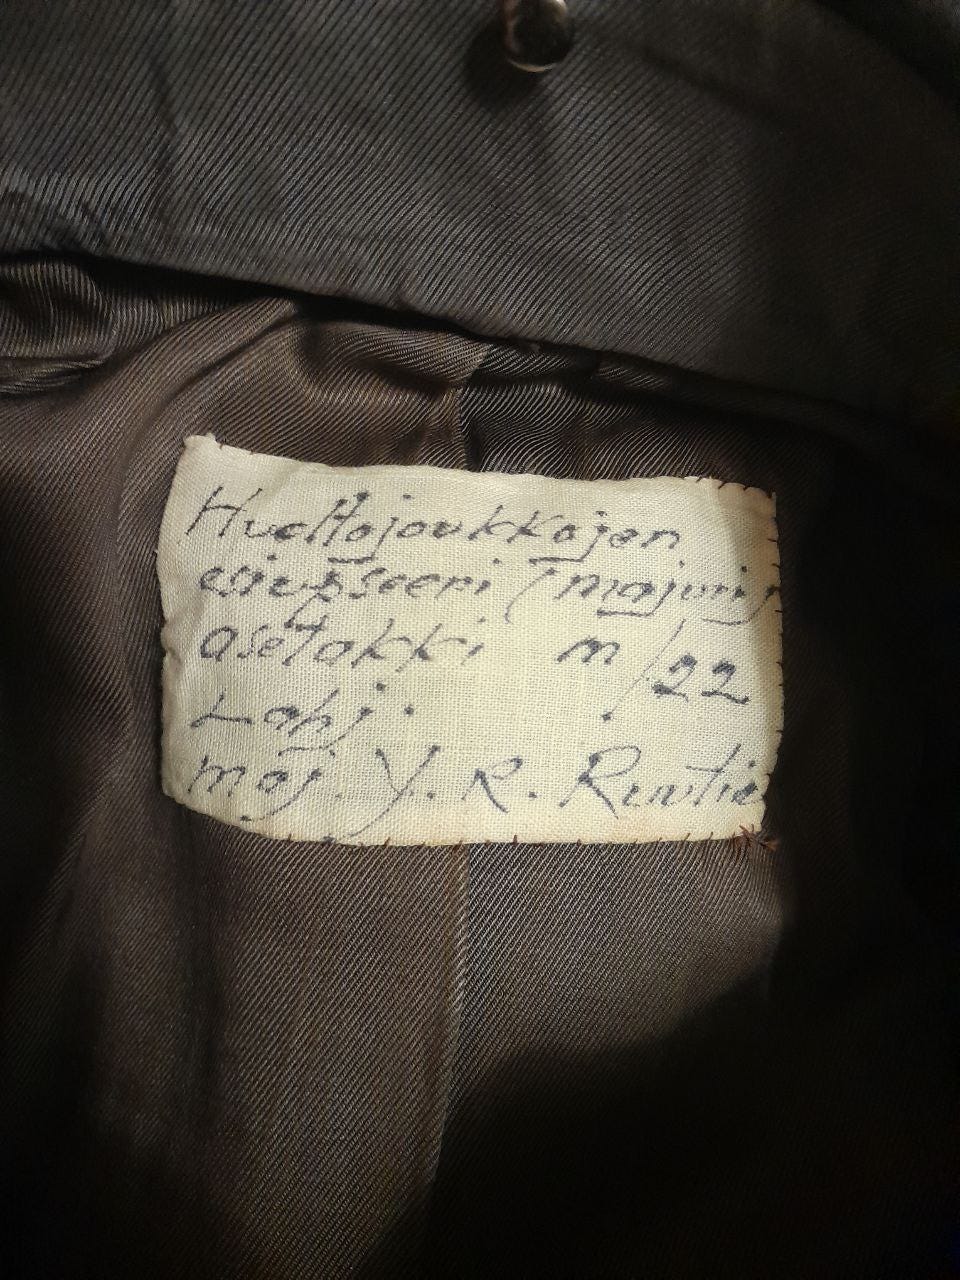 Huoltojoukkojen
esiupseeri (majuri)
asetakki m/22
Lahj.
maj. Y. R.